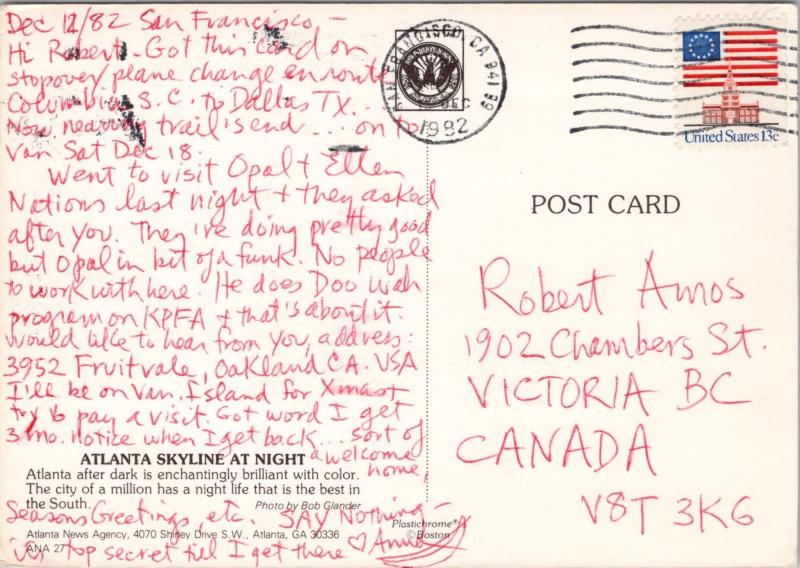 Dec 12/82 San Francisco -
Hi Robert. Got this card on
stopover/plane change en route
Columbia, S.C. to Dallas TX...
Now nearing trail's end... on to
Van Sat Dec 18.
Went to visit Opal + Ellen
Nations last night + they asked
after you. They're doing pretty good
but Opal in bit of a funk. No people
to work with here. He does Doo Wah
program on KPFA + that's about it.
Would like to hear from you, address:
3952 Fruitvale, Oakland CA. USA
I'll be on Van. Island for Xmas +
try to pay a visit. Got word I get
3 mo. notice when I get back... sort of
a welcome
home,
ATLANTA SKYLINE AT NIGHT
Atlanta after dark is enchantingly brilliant with color.
The city of a million has a night life that is the best in
the South.
Photo by Bob Glander
Seasons Greetings, etc. SAY Nothing -
Plastichrome®
© Boston
Atlanta News Agency, 4070 Shirley Drive S.W., Atlanta, GA 30336
ANA 27
top secret till I get there ♡ Anna
SAN FRANCISCO, CA 94188
DEC
1982
United States 13c
POST CARD
Robert Amos
1902 Chambers St.
VICTORIA BC
CANADA
V8T 3K6